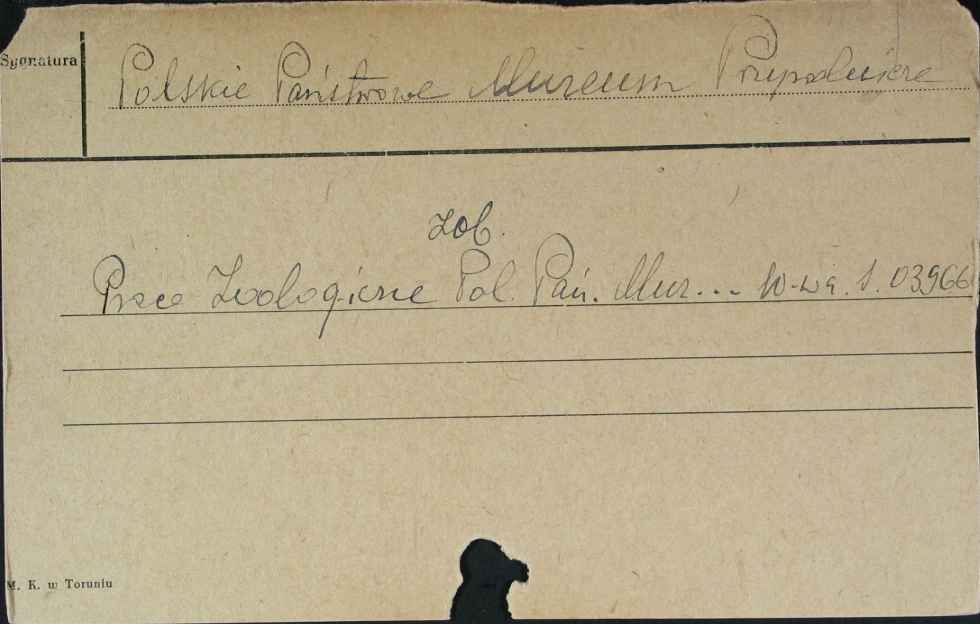 Sygnatura
Polskie Państwowe Muzeum Przyrodnicze
zob.
Prace Zoologiczne Pol. Pań. Muz... W-wa. S. 03966
M. K. w Toruniu